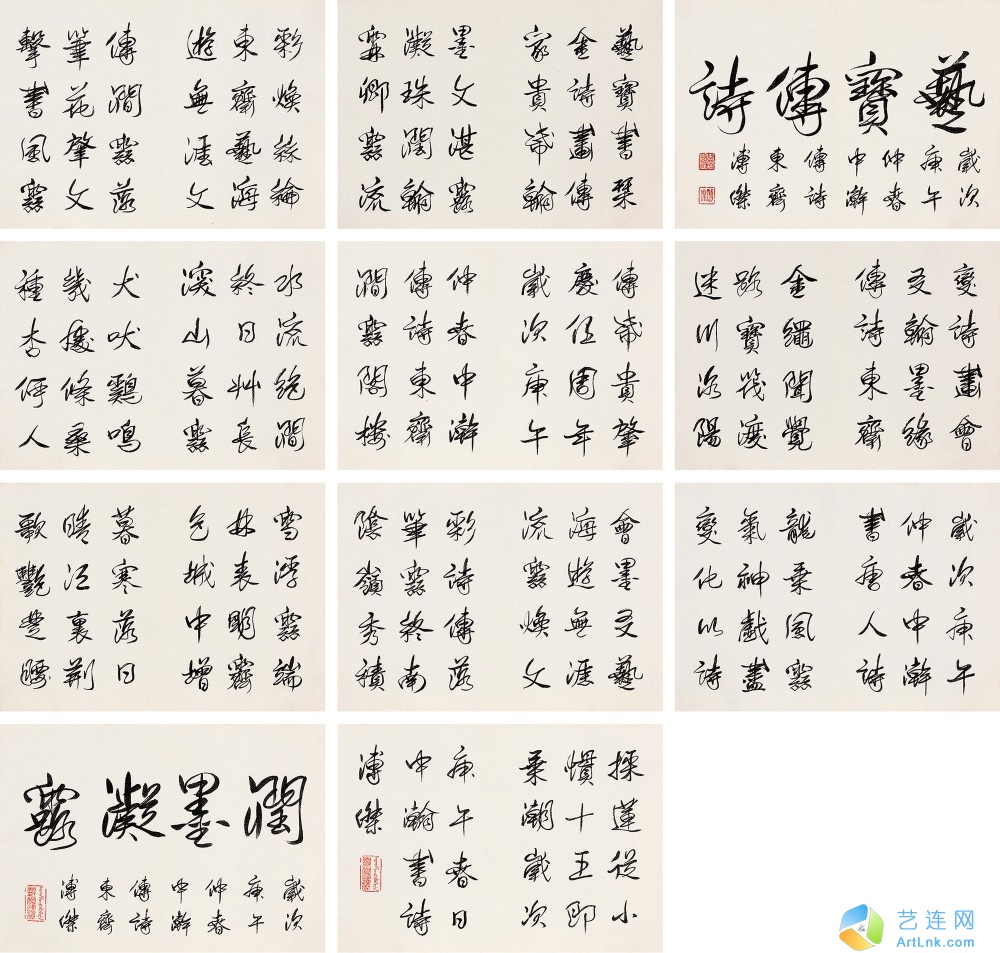 藝寶傳詩
歲次
庚午
仲春
中澣
傳詩
東齊
溥傑
藝寶書琹
金詩畫傳
家貴箴翰
墨文湛露
凝珠潤翰
霖卿雲流
彩煥絲綸
東齊藝海
遊無涯文
傳澗雲落
筆花肇文
擊書風雲
變詩畫會
友翰墨緣
傳詩東齊
金繩開覺
路寶筏渡
迷川洛陽
傳箴貴肇
慶伍周年
歲次庚午
仲春中澣
傳詩東齊
澗雲閣樓
水流絕澗
終日艸長
深山暮雲
犬吠鷄鳴
幾處條桑
種杏何人
歲次庚午
仲春中澣
書唐人詩
龍乘風雲
氣神戲畫
變化以詩
會墨友藝
海遊無涯
流雲煥文
彩詩傳落
筆雲終南
陰嶺秀積
雪浮雲端
林表明霽
色城中增
暮寒落日
晴江裏荊
歌艷楚腰
採蓮從小
慣十五即
乘潮歲次
庚午春日
中瀚書詩
溥傑
潤墨凝露
歲次
庚午
仲春
中澣
傳詩
東齊
溥傑
艺连网
ArtLnk.com